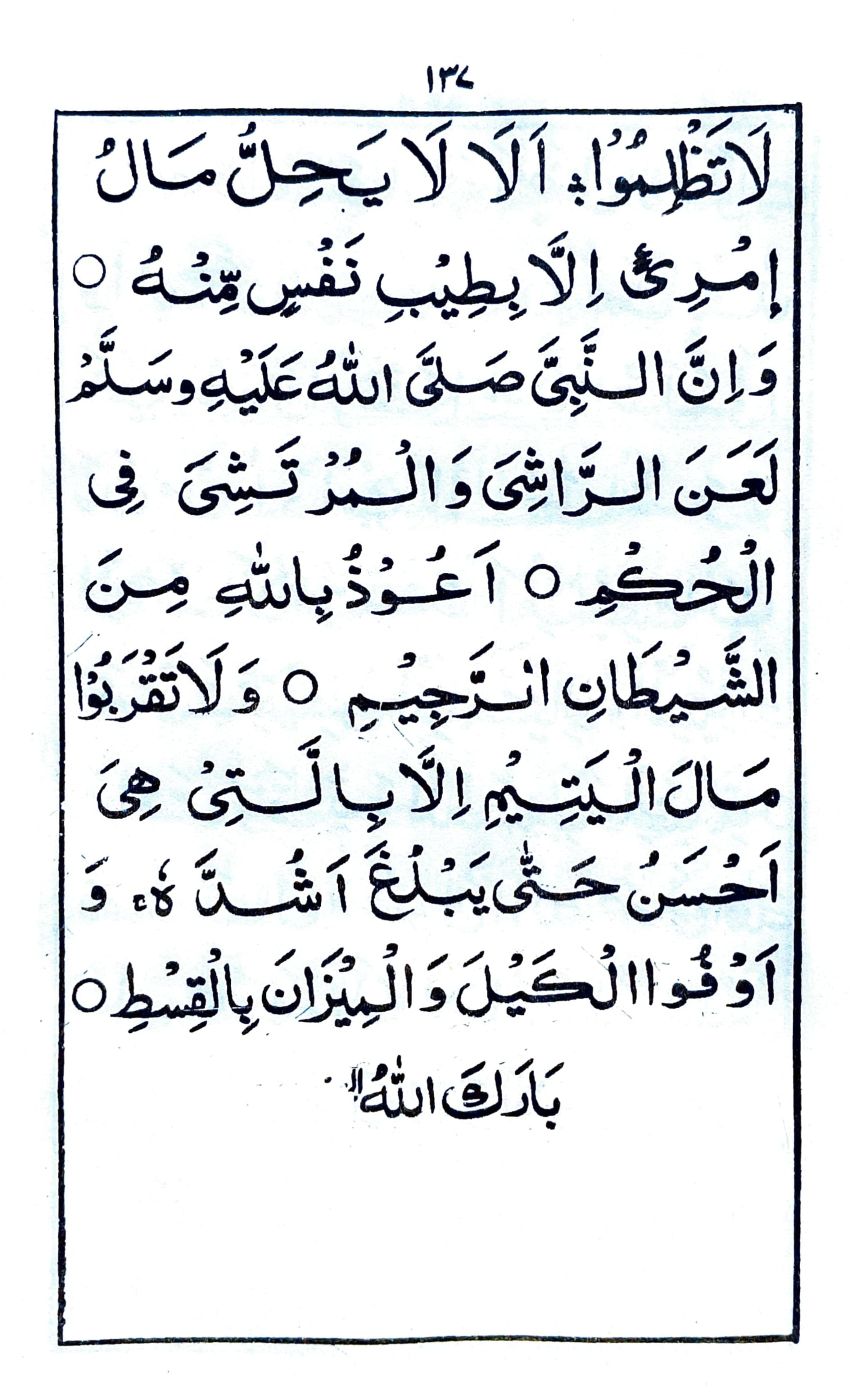 ١٣٧
لَا تَظْلِمُوْا؞ اَلَا لَا يَحِلُّ مَالُ
اِمْرِئٍ اِلَّا بِطِيْبِ نَفْسٍ مِّنْهُ ○
وَاِنَّ النَّبِيَّ صَلَّى اللّٰهُ عَلَيْهِ وسَلَّمْ
لَعَنَ الرَّاشِىَ وَالْمُرْتَشِىَ فِى
الْحُكْمِ ○ اَعُوْذُ بِاللّٰهِ مِنَ
الشَّيْطَانِ الرَّجِيْمِ ○ وَلَا تَقْرَبُوْا
مَالَ الْيَتِيْمِ اِلَّا بِالَّتِىْ هِىَ
اَحْسَنُ حَتّٰى يَبْلُغَ اَشُدَّهٗ وَ
اَوْفُوا الْكَيْلَ وَالْمِيْزَانَ بِالْقِسْطِ ○
بَارَكَ اللّٰهُ الـ..